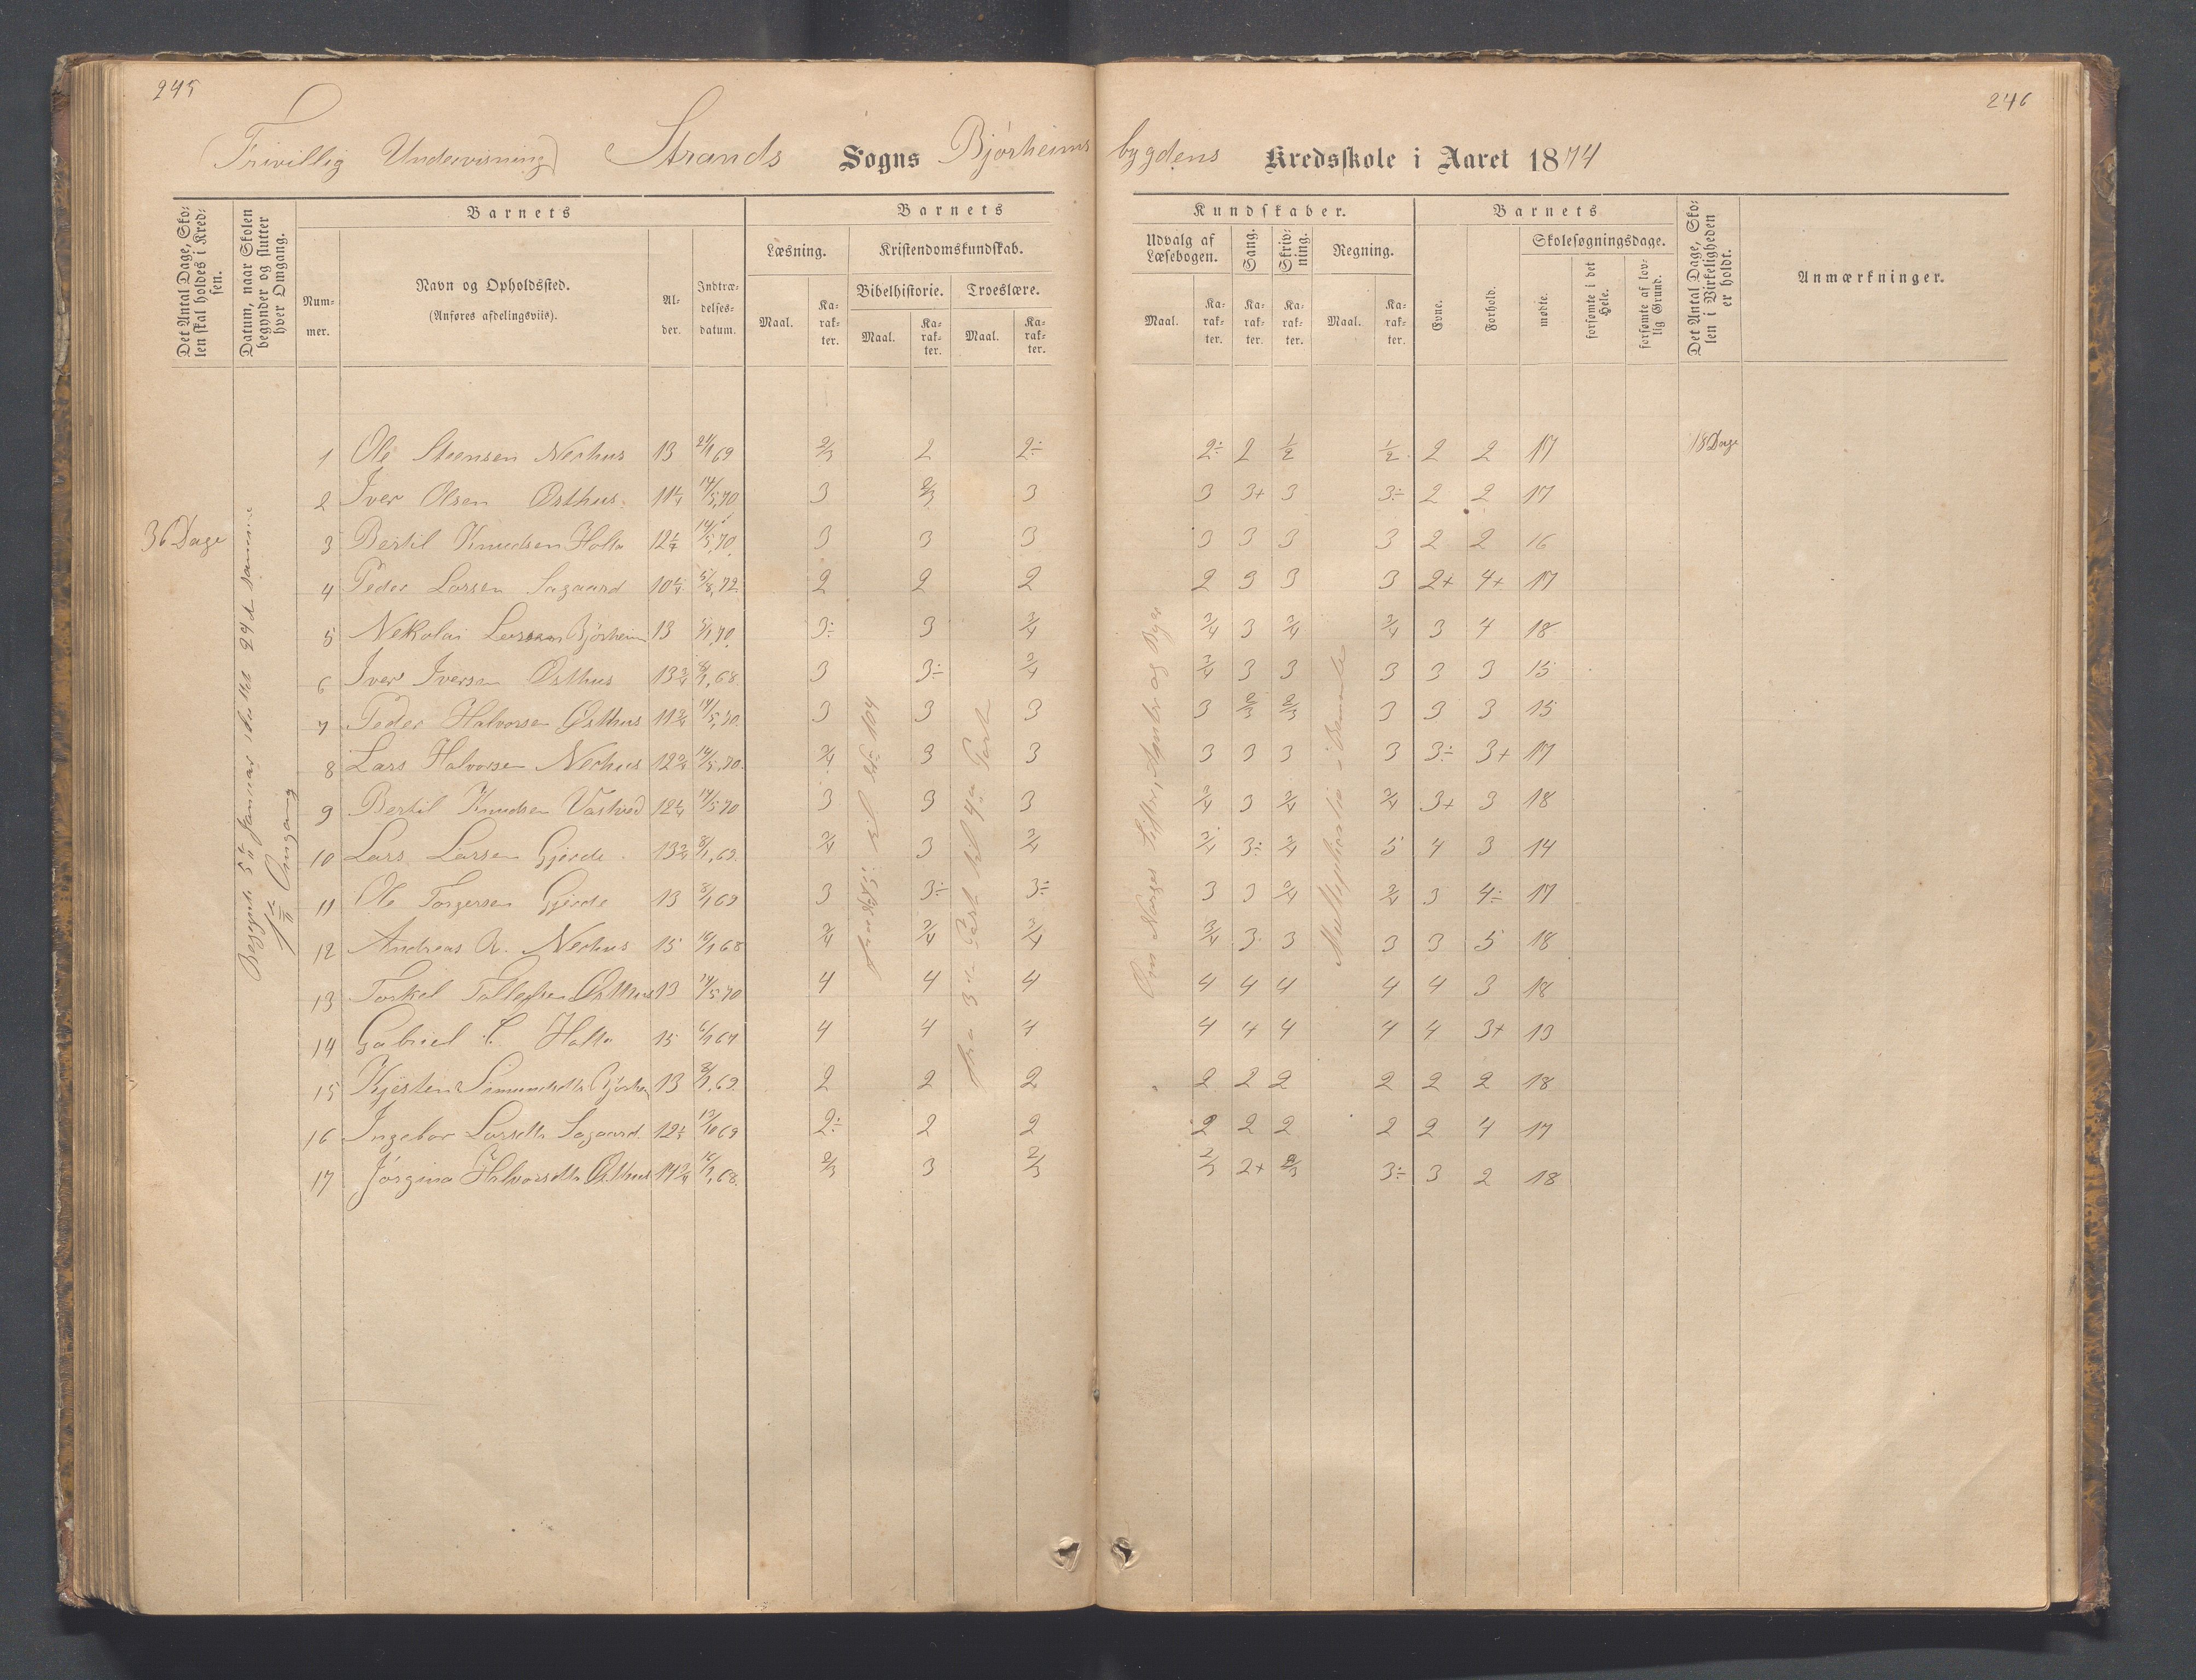 245
246
(Frivillig Undervisning) Strands Sogns Bjørheims bygdens Kredsskole i Aaret 1874
Det Antal Dage, Skolen skal holdes i Kredsen.
Datum, naar Skolen begynder og slutter hver Omgang.
Barnets
Nummer.
Navn og Opholdssted.
(Anføres afdelingsviis).
Alder.
Indtrædelsesdatum.
Barnets
Læsning.
Kristendomskundskab.
Bibelhistorie.
Troeslære.
Maal. Karakter. Maal. Karakter. Maal. Karakter.
Kundskaber.
Udvalg af Læsebogen.
Sang.
Skrivning.
Regning.
Maal. Karakter. Karakter. Karakter. Maal. Karakter.
Barnets
Evne.
Forhold.
Skolesøgningsdage.
mødte.
forsømte i det Hele.
forsømte af lovlig Grund.
Det Antal Dage, Skolen i Virkeligheden er holdt.
Anmærkninger.
36 Dage
Begyndt 5te Januar sluttet 24d samme
1te Omgang
1 Ole Steensen Nechus 13 21/1 69 2/3 2 2÷ 2÷ 2 1/2 1/2 2 2 17 18 Dage
2 Iver Olsen Østhus 11 1/4 14/5 70 3 2/3 3 3 3+ 3 3÷ 2 2 17
3 Bertil Knudsen Holta 12 1/4 14/5 70 3 3 3 3 3 3 3 2 2 16
4 Peder Larsen Sagaard 10 1/4 5/8 72 2 2 2 2 3 3 3 2+ 4+ 17
5 Nekolai Larsen Bjørheim 13 5/1 70 3÷ 3 3/4 3/4 3 3/4 3/4 3 4 18
6 Iver Iversen Østhus 13 3/4 8/1 68 3 3÷ 3/4 3/4 3 3 3 3 3 15
7 Peder Halvorsen Østhus 11 3/4 14/5 70 3 3 3 3 2/3 2/3 3 3 3 15
8 Lars Halvorsen Nechus 12 3/4 14/5 70 3/4 3 3 3 3 3 3 3÷ 3+ 17
9 Bertil Knudsen Vastved 12 1/4 14/5 70 3 3 3 3/4 3 3/4 3/4 3+ 3 18
10 Lars Larsen Gjerde 13 3/4 8/1 69 3/4 3 3/4 3/4 3÷ 3/4 5 4 3 14
11 Ole Torgersen Gjerde 13 8/1 69 3 3÷ 3÷ 3 3 3/4 3/4 3 4÷ 17
12 Andreas R. Nechus 15 16/1 68 3/4 3/4 3/4 3/4 3 3 3 3 5 18
13 Torkel Tollefsen Østhus 13 14/5 70 4 4 4 4 4 4 4 4 3 18
14 Gabriel Holta 15 6/1 67 4 4 4 4 4 4 4 4 3+ 13
15 Kjestina Simunsdttr Bjørheim 13 8/1 69 2 2 2 2 2 2 2 2 2 18
16 Ingebor Larsdtt Sagaard 12 1/3 13/10 69 2÷ 2 2 2 2 2 2 2 4 17
17 Jørgina Halvorsdttr Østhus 14 3/4 16/1 68 2/3 3 2/3 2/3 2+ 2/3 3÷ 3 2 18
til St. 104
fra 3die Part til 4de Part
Om Norges og Byer